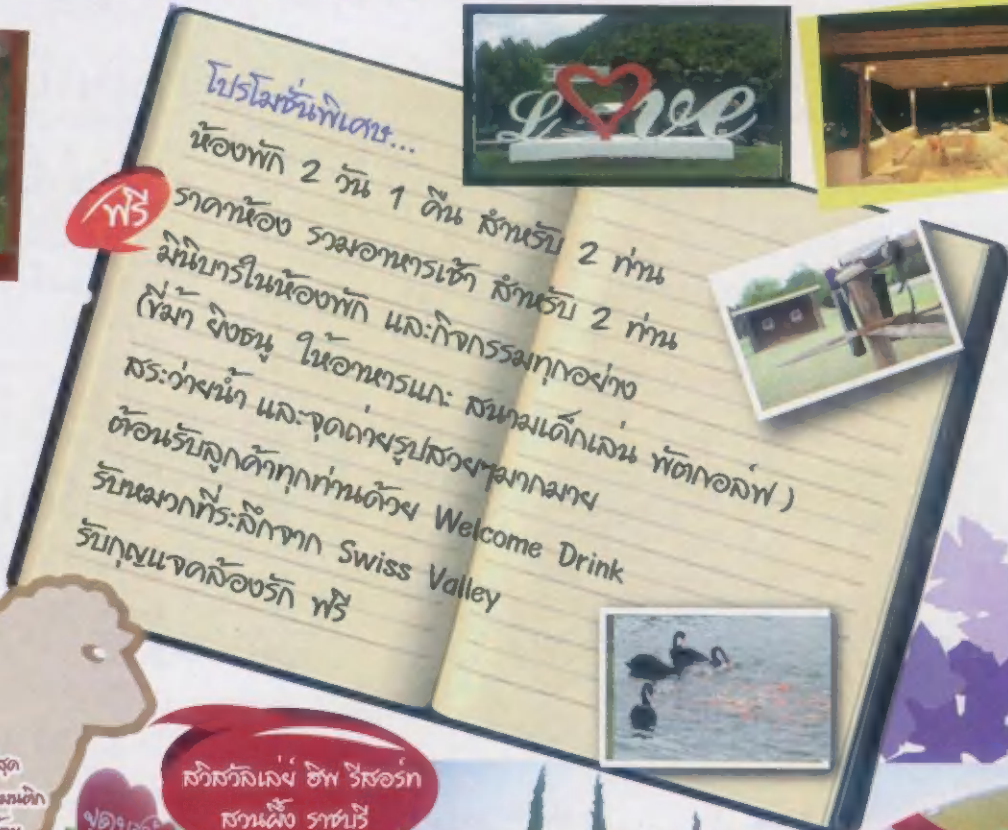 Love
โปรโมชั่นพิเศษ...
ห้องพัก 2 วัน 1 คืน สำหรับ 2 ท่าน
ฟรี
ราคาห้อง รวมอาหารเช้า สำหรับ 2 ท่าน
มินิบารในห้องพัก และกิจกรรมทุกอย่าง
(ขี่ม้า ยิงธนู ให้อาหารแกะ สนามเด็กเล่น พัตกอล์ฟ)
สระว่ายน้ำ และจุดถ่ายรูปสวยๆมากมาย
ต้อนรับลูกค้าทุกท่านด้วย Welcome Drink
รับหมวกที่ระลึกจาก Swiss Valley
รับกุญแจคล้องรัก ฟรี
สวิสวัลเล่ย์ ฮิพ รีสอร์ท
สวนผึ้ง ราชบุรี